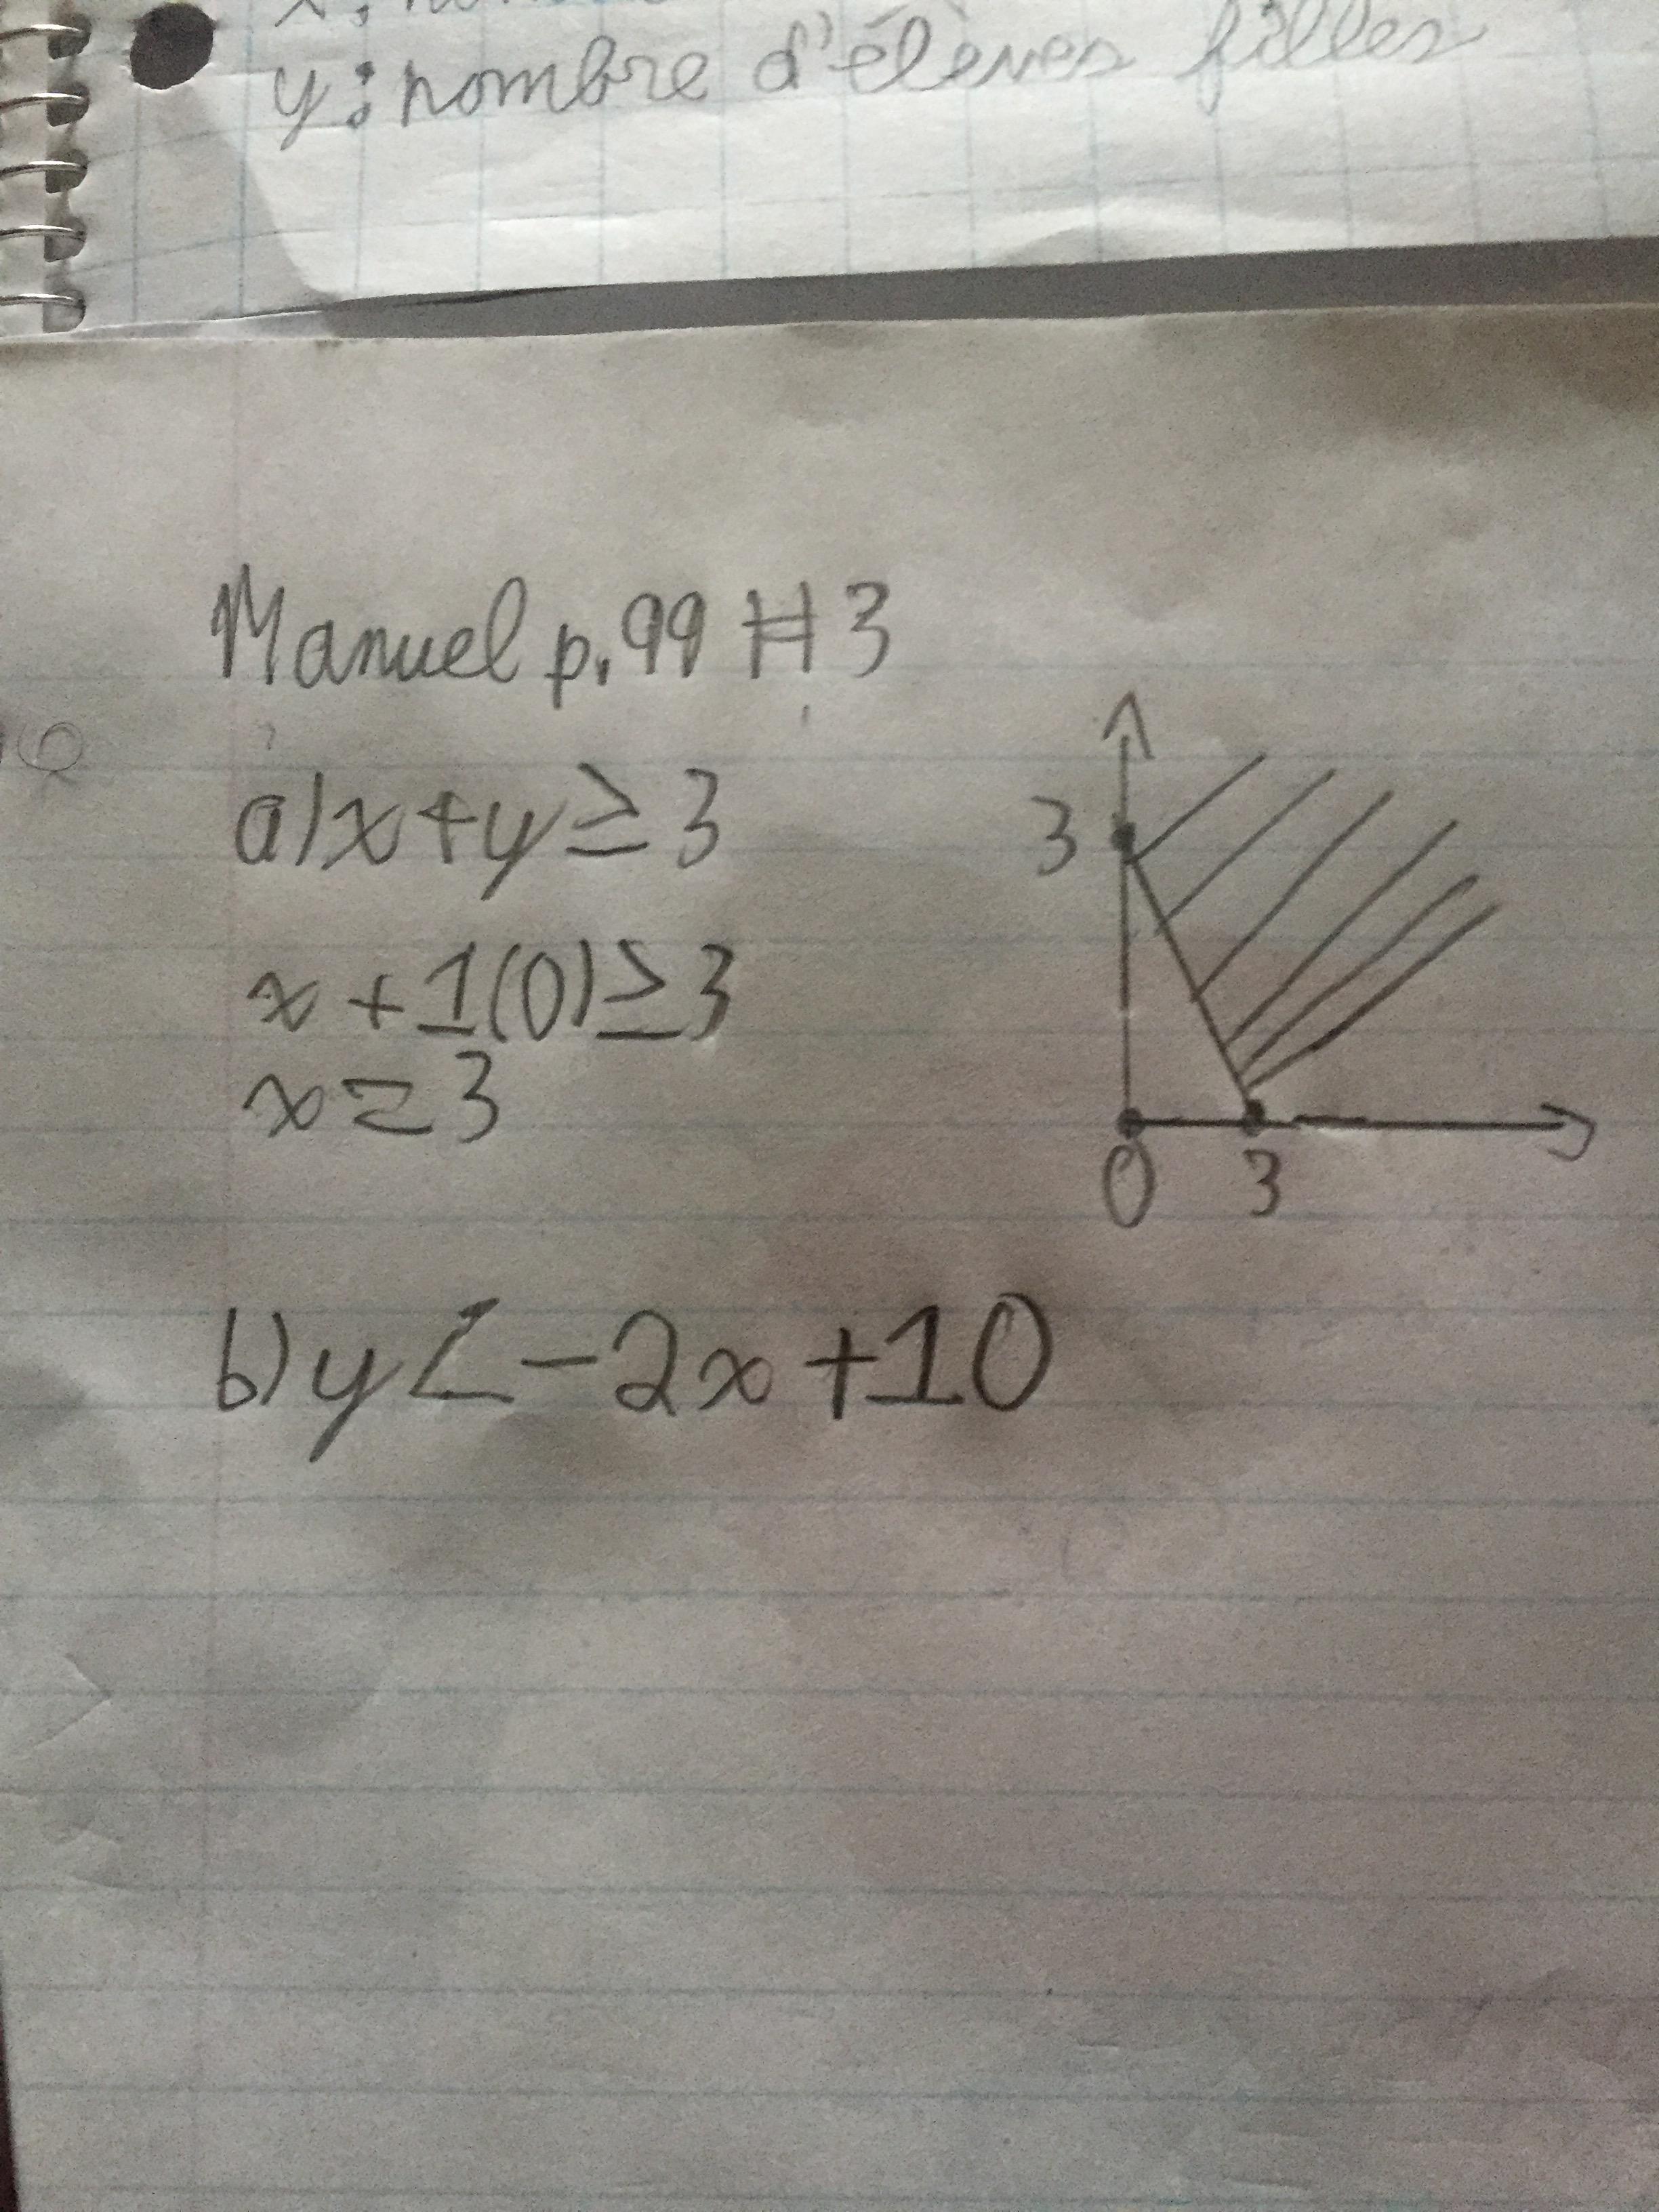 y : nombre d'élèves filles
Manuel p.99 #3
a) x + y ≥ 3
x + 1(0) ≥ 3
x = 3
3
0 3
b) y < -2x + 10